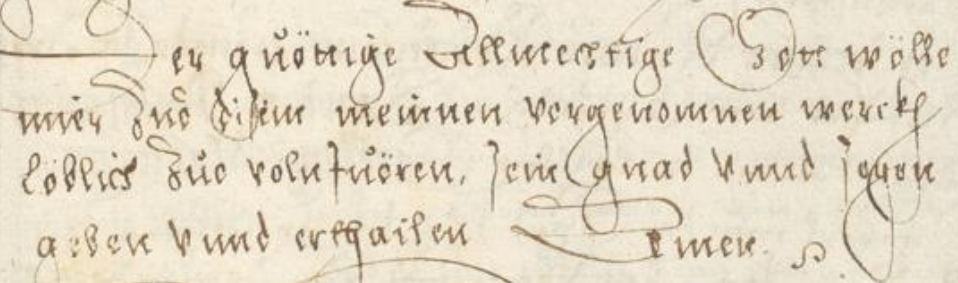 Der guöttige Allmechtige Gott wölle
mier Zuo disem meinnen vorgenomnen werckh
löblich Zuo volnfuören, sein gnad vnnd segen
geben vnnd erthailen Amen.